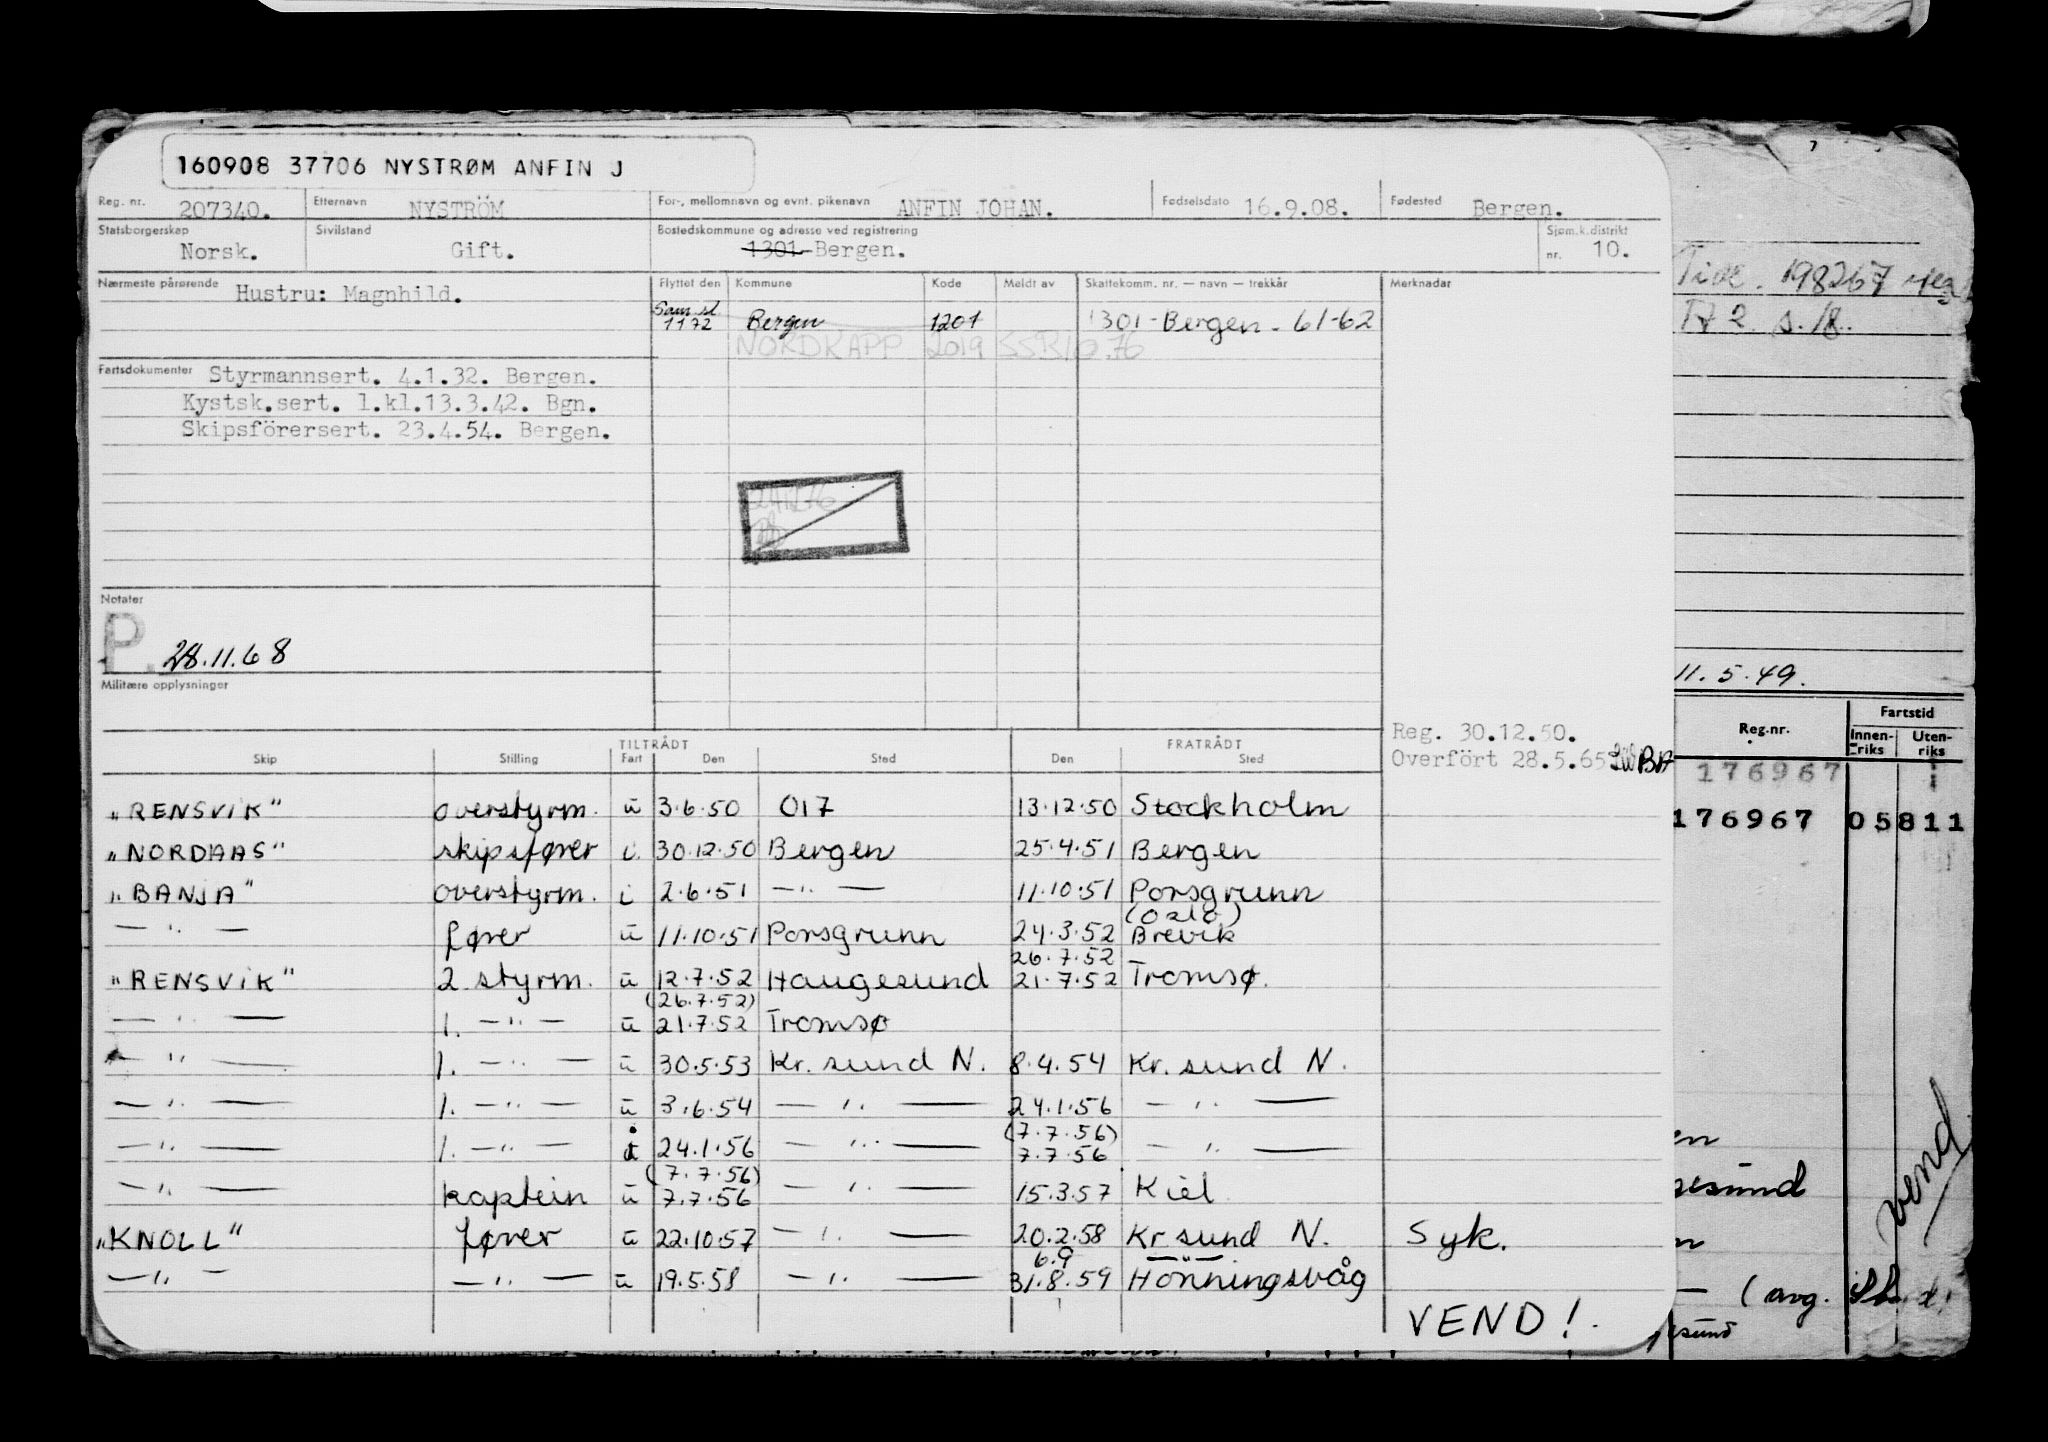 160908 37706 NYSTRØM ANFIN J
Reg. nr. 207340. Etternavn NYSTRÖM For-, mellomnavn og evnt. pikenavn ANFIN JOHAN. Fødselsdato 16.9.08. Fødested Bergen.
Statsborgerskap Norsk. Sivilstand Gift. Bostedskommune og adresse ved registrering 1301 Bergen. Sjøm.k.distrikt nr. 10.
Nærmeste pårørende Hustru: Magnhild. Flyttet den Kommune Kode Meldt av Skattekomm. nr. — navn — trekkår Merknadar
1172 Bergen 1201 1301 - Bergen - 61-62
NORDKAPP 2019
Fartsdokumenter Styrmannsert. 4.1.32. Bergen.
Kystsk.sert. 1.kl.13.3.42. Bgn.
Skipsförersert. 23.4.54. Bergen.
Notater
P. 28.11.68
Militære opplysninger
Reg. 30.12.50.
Overfört 28.5.65 BA
TILTRÅDT FRATRÅDT
Skip Stilling Fart Den Sted Den Sted
"RENSVIK" overstyrm. u 3.6.50 017 13.12.50 Stockholm
"NORDAAS" skipsfører i. 30.12.50 Bergen 25.4.51 Bergen
"BANJA" overstyrm. i 2.6.51 —"— 11.10.51 Porsgrunn
(Oslo)
—"— fører u 11.10.51 Porsgrunn 24.3.52 Brevik
26.7.52
"RENSVIK" 2 styrm. u 12.7.52 Haugesund 21.7.52 Tromsø.
(26.7.52)
—"— 1. —"— u 21.7.52 Tromsø
—"— 1. —"— u 30.5.53 Kr. sund N. 8.4.54 Kr. sund N.
—"— 1. —"— u 3.6.54 —"— 24.1.56 —"—
(7.7.56)
—"— 1. —"— i 24.1.56 —"— 7.7.56 —"—
(7.7.56)
—"— kaptein u 7.7.56 —"— 15.3.57 Kiel
"KNOLL" fører u 22.10.57 —"— 20.2.58 Kr sund N. Syk.
6.9 —"—
—"— —"— u 19.5.58 —"— 31.8.59 Honningsvåg
VEND!
198267
s. 18.
11.5.49.
Reg.nr. Fartstid
Innen-riks Uten-riks
176967
176967 05811
en
gesund
vend
n
— (avg.
esund